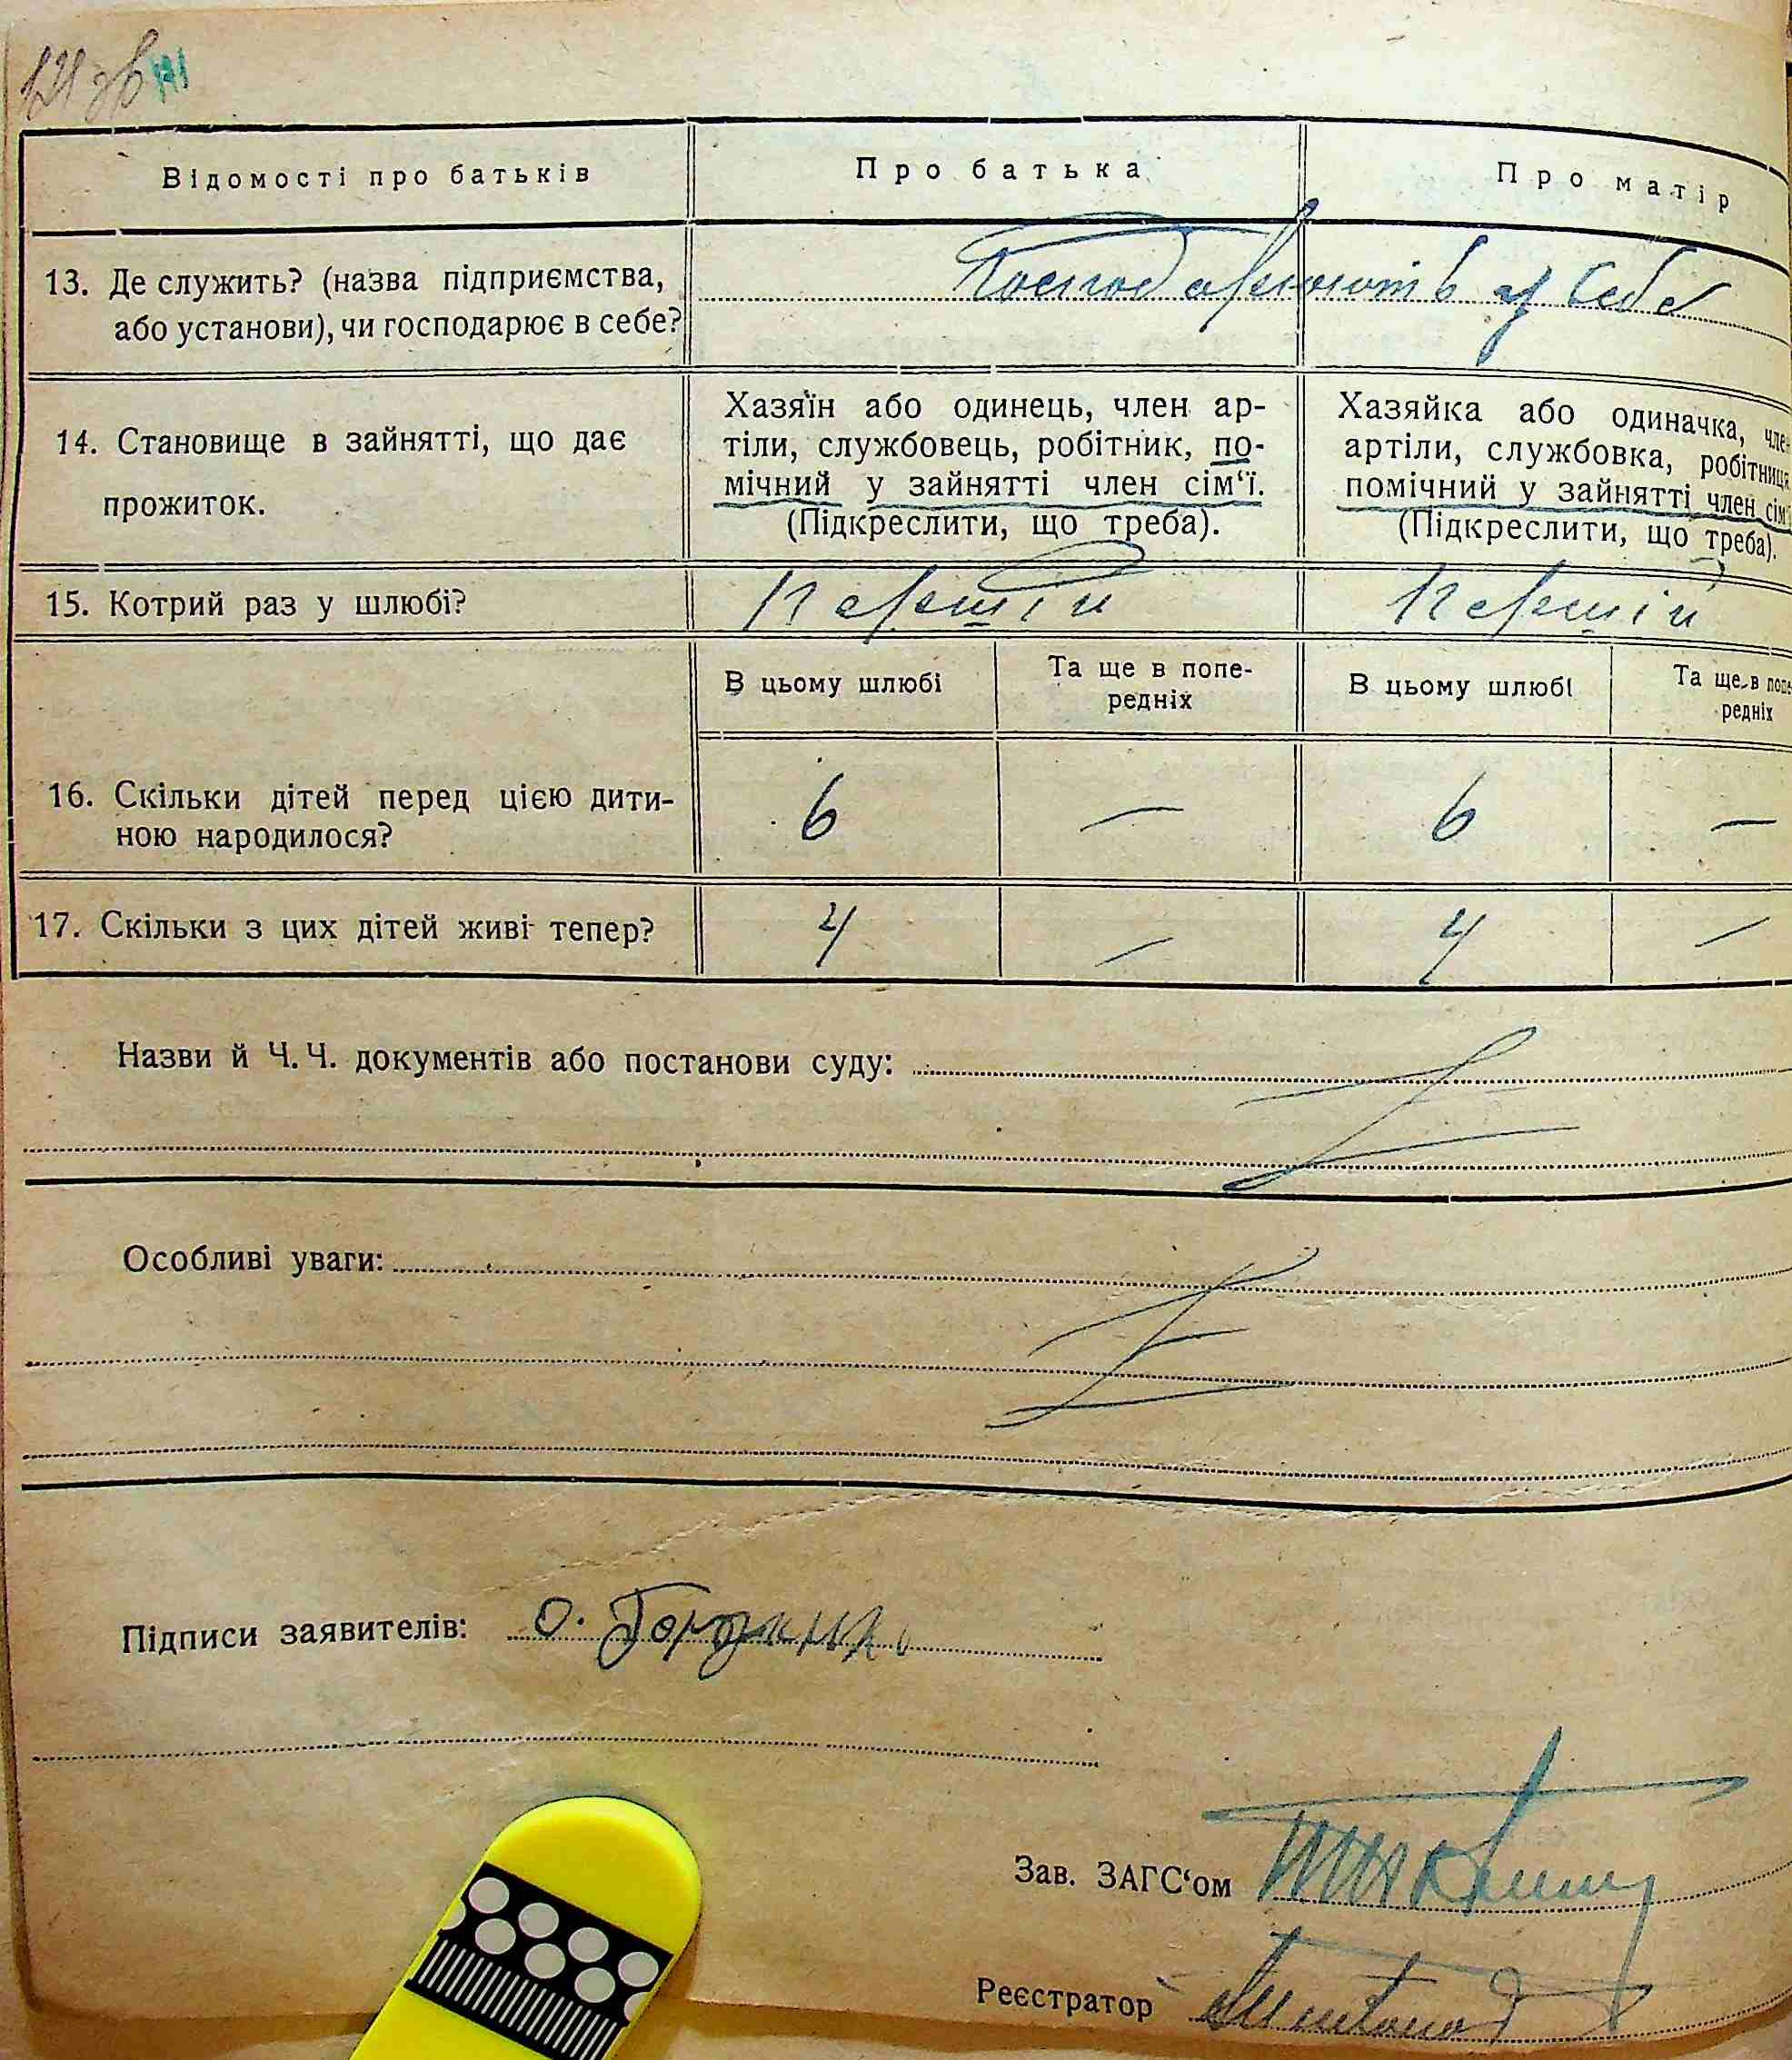 121 зв
Відомості про батьків
Про батька
Про матір
13. Де служить? (назва підприємства,
або установи), чи господарює в себе?
Господарюють в у себе
14. Становище в зайнятті, що дає
прожиток.
Хазяїн або одинець, член ар-
тіли, службовець, робітник, по-
мічний у зайнятті член сім‘ї.
(Підкреслити, що треба).
Хазяйка або одиначка, чле-
артіли, службовка, робітниця
помічний у зайнятті член сім‘ї
(Підкреслити, що треба).
15. Котрий раз у шлюбі?
Перший
Перший
В цьому шлюбі
Та ще в попе-
редніх
В цьому шлюбі
Та ще в попе
редніх
16. Скільки дітей перед цією дити-
ною народилося?
6 — 6 —
17. Скільки з цих дітей живі тепер?
4 — 4 —
Назви й Ч. Ч. документів або постанови суду:
Особливі уваги:
Підписи заявителів: О.
Зав. ЗАГС‘ом
Реєстратор